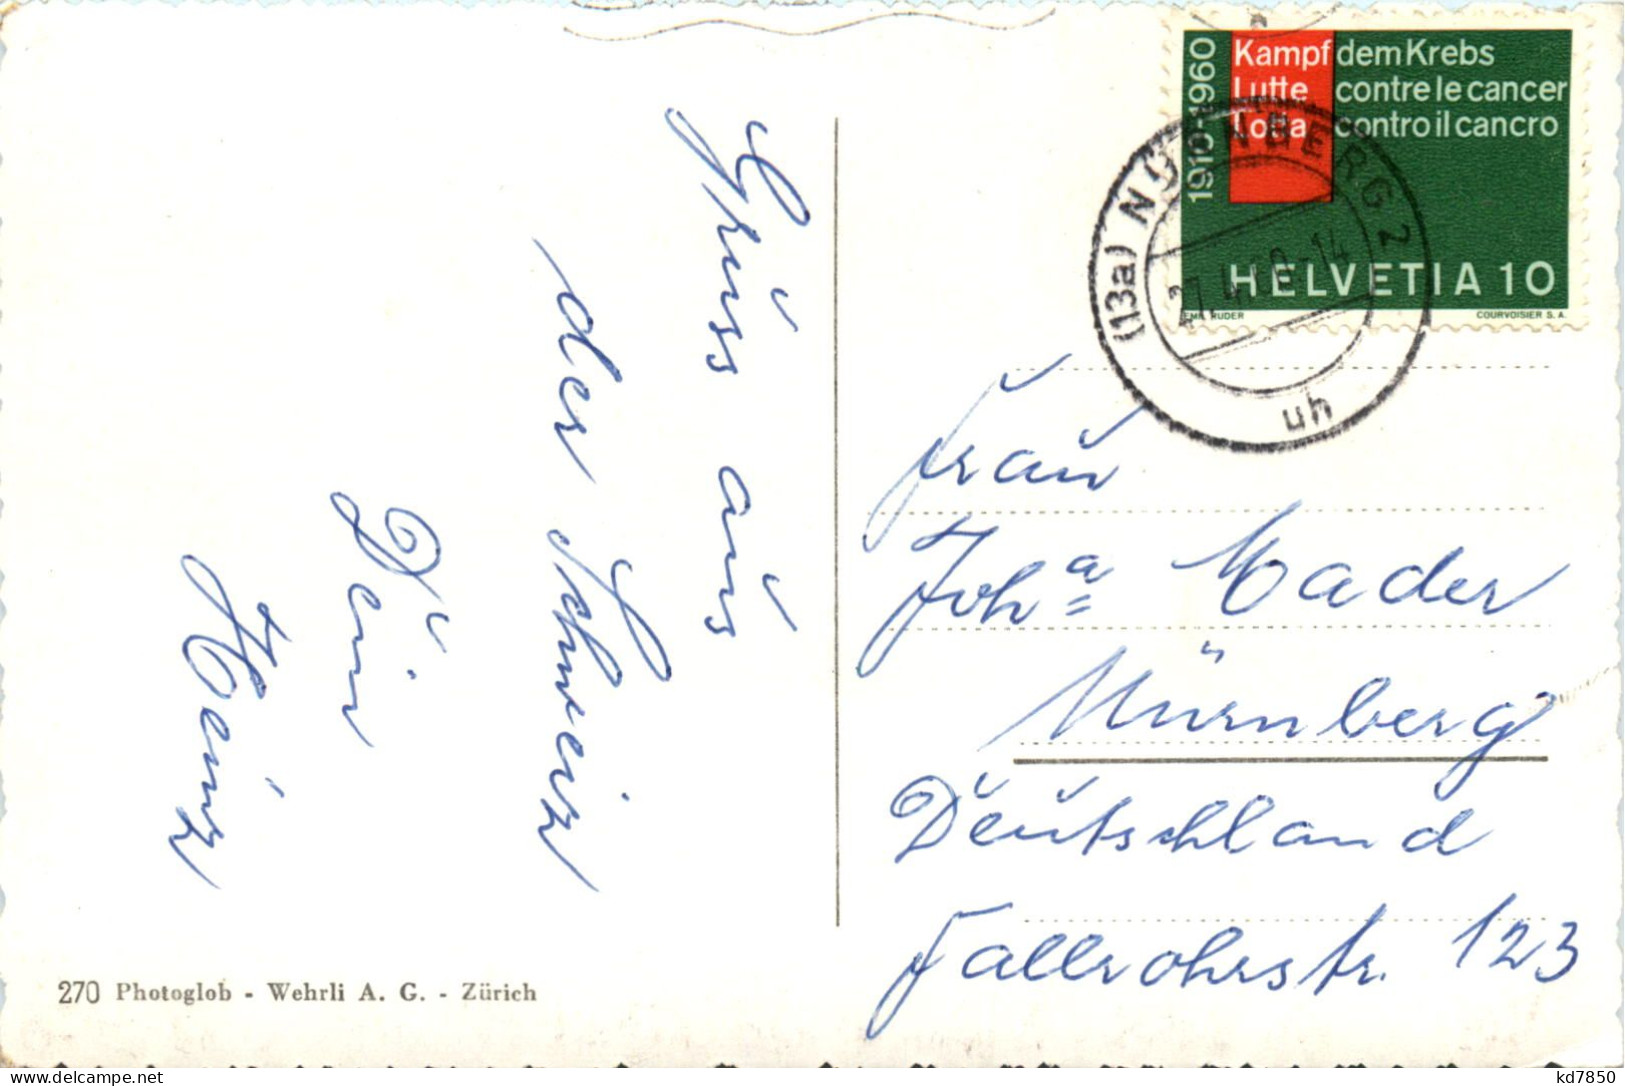 Gruss aus
der Schweiz
Dein
Heinz
270 Photoglob - Wehrli A. G. - Zürich
1910-1960
Kampf dem Krebs
Lutte contre le cancer
Lotta contro il cancro
HELVETIA 10
RUDER
COURVOISIER S. A.
(13a) NÜRNBERG 2
uh
Frau
Joh<sup>a</sup> Mader
Nürnberg
Deutschland
Fallrohrstr. 123
kd7850